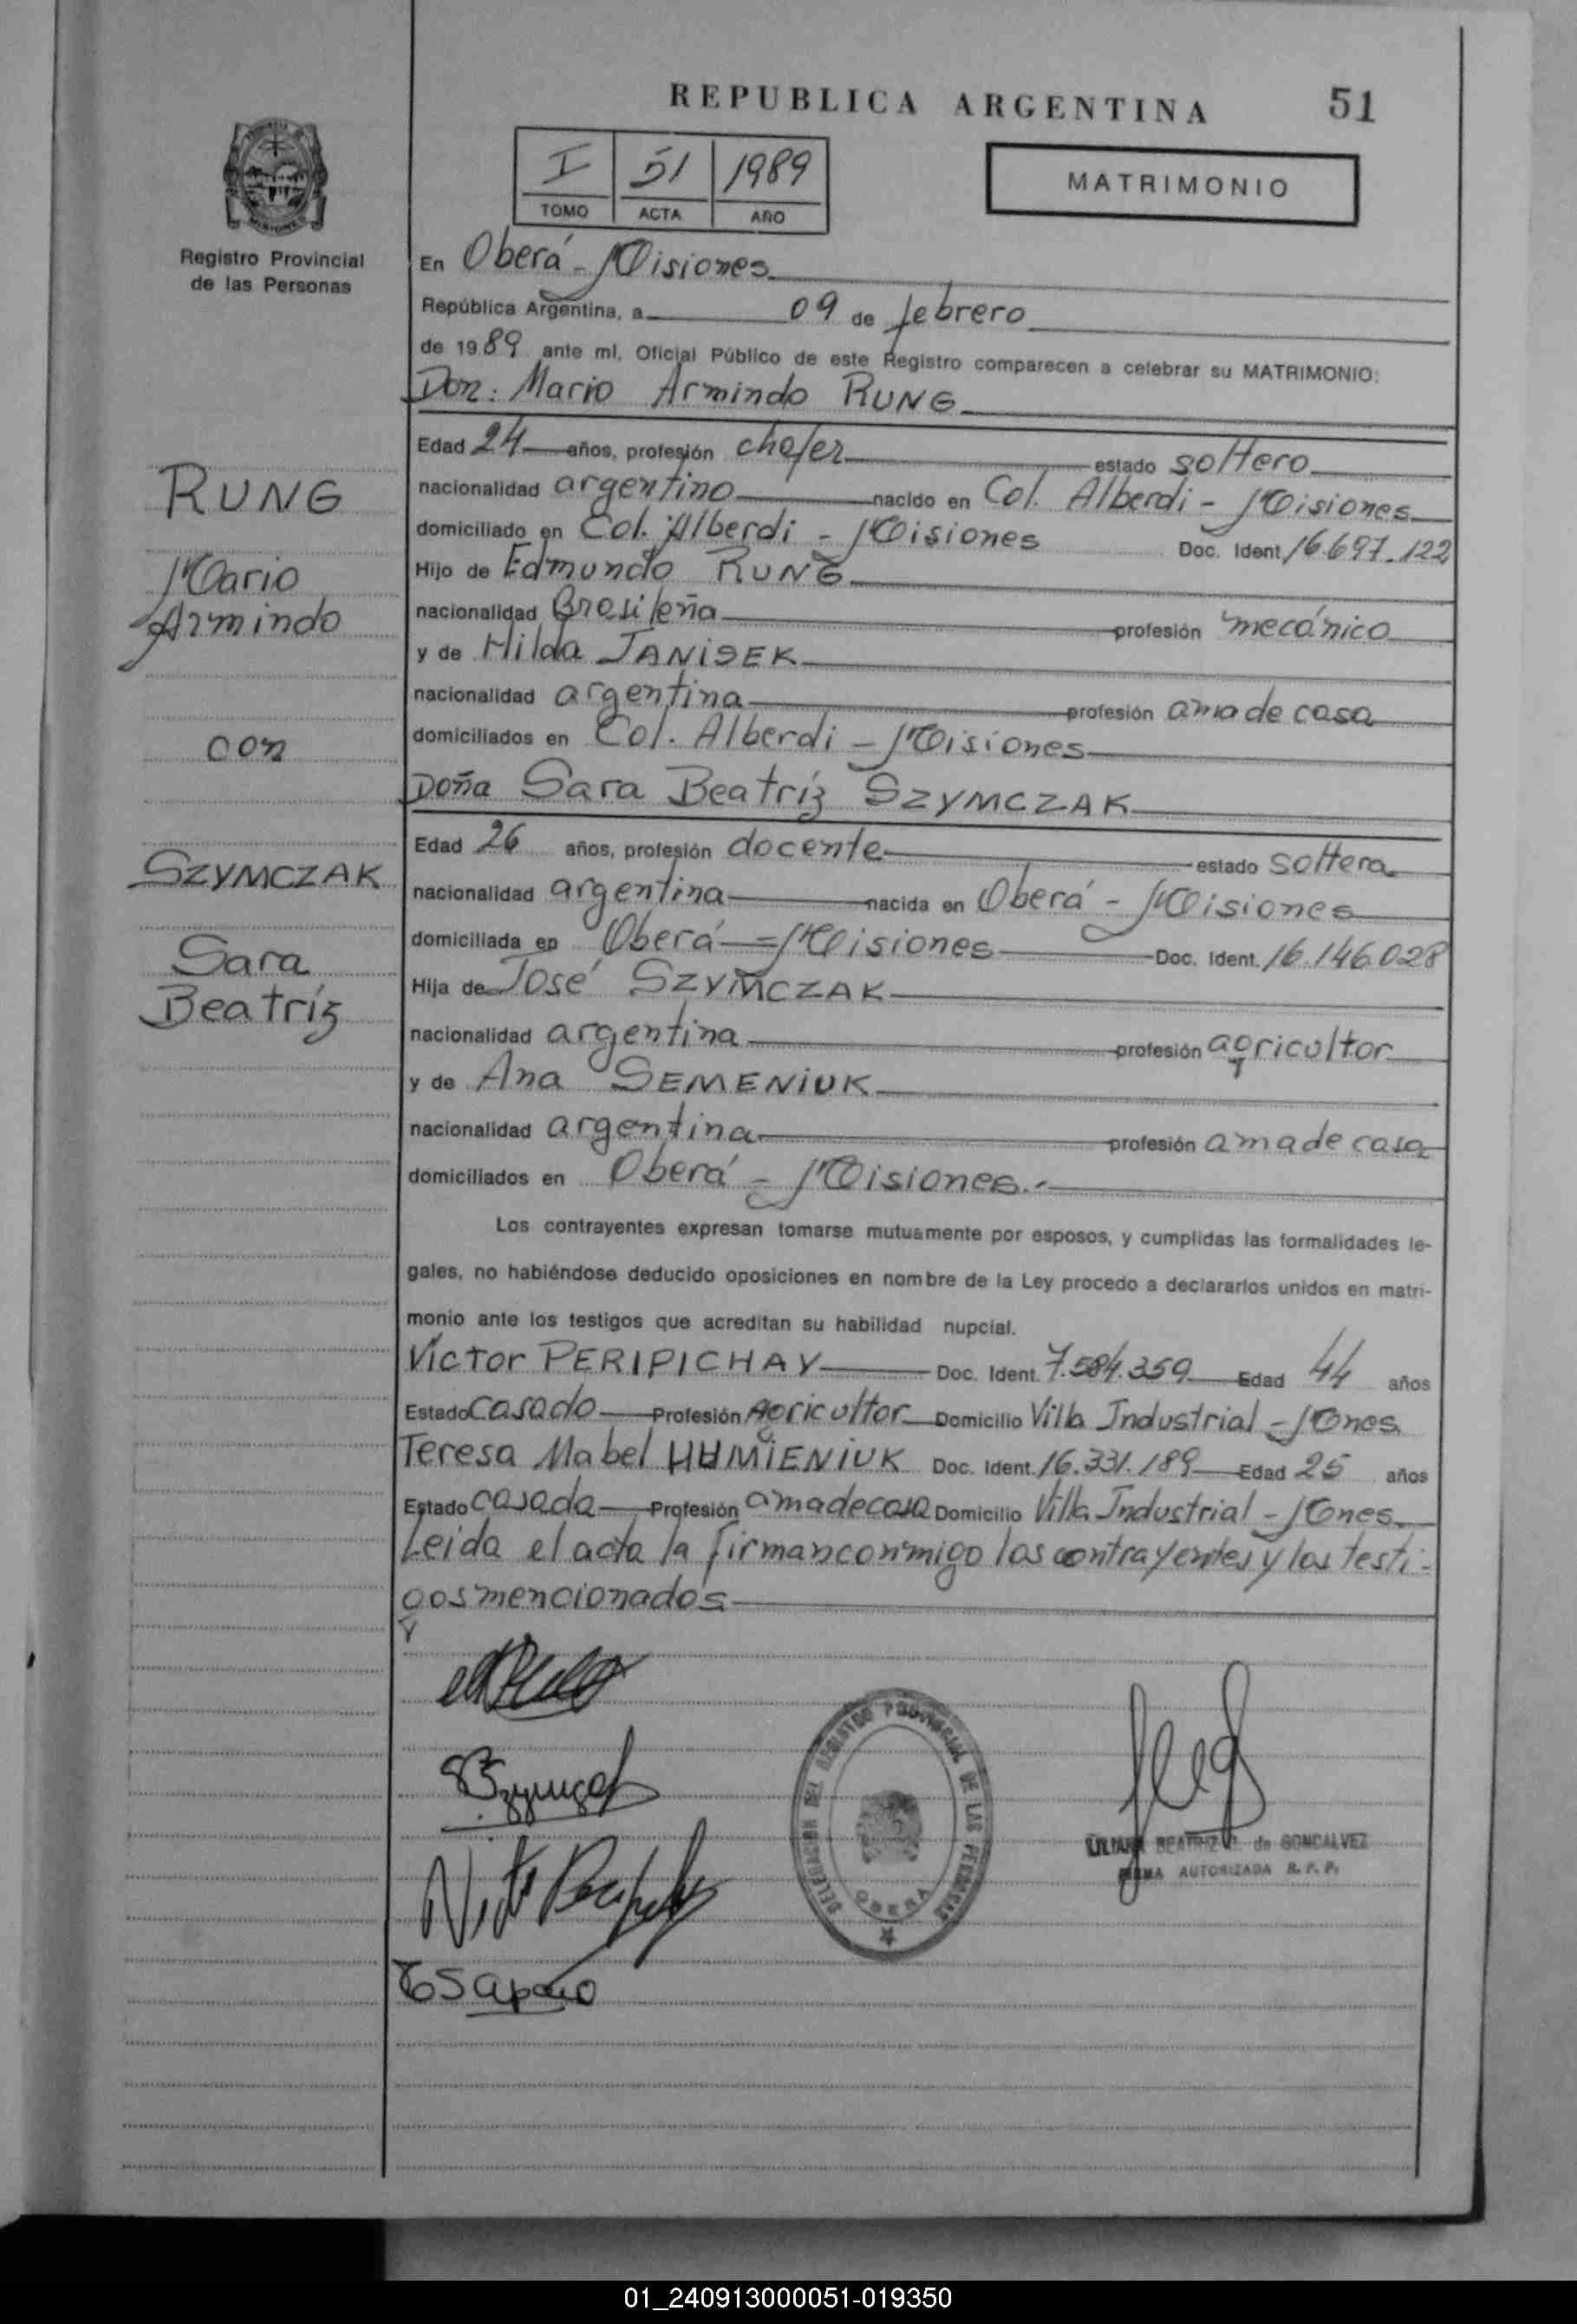 REPUBLICA ARGENTINA 51
I 51 1989
TOMO ACTA AÑO
MATRIMONIO
Registro Provincial
de las Personas
En Oberá - Misiones
República Argentina, a 09 de febrero
de 1989 ante mí, Oficial Público de este Registro comparecen a celebrar su MATRIMONIO:
Don: Mario Armindo RUNG
Edad 24 años, profesión chofer estado soltero
nacionalidad argentino nacido en Col. Alberdi - Misiones
domiciliado en Col. Alberdi - Misiones Doc. Ident. 16.697.122
Hijo de Edmundo RUNG
nacionalidad Brasileña profesión mecánico
y de Hilda JANISEK
nacionalidad argentina profesión ama de casa
domiciliados en Col. Alberdi - Misiones
Doña Sara Beatríz SZYMCZAK
Edad 26 años, profesión docente estado soltera
nacionalidad argentina nacida en Oberá - Misiones
domiciliada en Oberá = Misiones Doc. Ident. 16.146.028
Hija de José SZYMCZAK
nacionalidad argentina profesión agricultor
y de Ana SEMENIUK
nacionalidad argentina profesión ama de casa
domiciliados en Oberá - Misiones.-
RUNG
Mario
Armindo
con
SZYMCZAK
Sara
Beatríz
Los contrayentes expresan tomarse mutuamente por esposos, y cumplidas las formalidades le-
gales, no habiéndose deducido oposiciones en nombre de la Ley procedo a declararlos unidos en matri-
monio ante los testigos que acreditan su habilidad nupcial.
Víctor PERIPICHAY Doc. Ident. 7.584.359 Edad 44 años
Estado casado Profesión Agricultor Domicilio Villa Industrial - Mnes
Teresa Mabel HUMIENIUK Doc. Ident. 16.331.189 Edad 25 años
Estado casada Profesión ama de casa Domicilio Villa Industrial - Mnes.
Leida el acta la firman conmigo los contrayentes y los testi-
gos mencionados
DELEGACION DEL REGISTRO PROVINCIAL DE LAS PERSONAS
OBERA
LILIANA BEATRIZ de GONCALVEZ
FIRMA AUTORIZADA R. P. P.
01_240913000051-019350